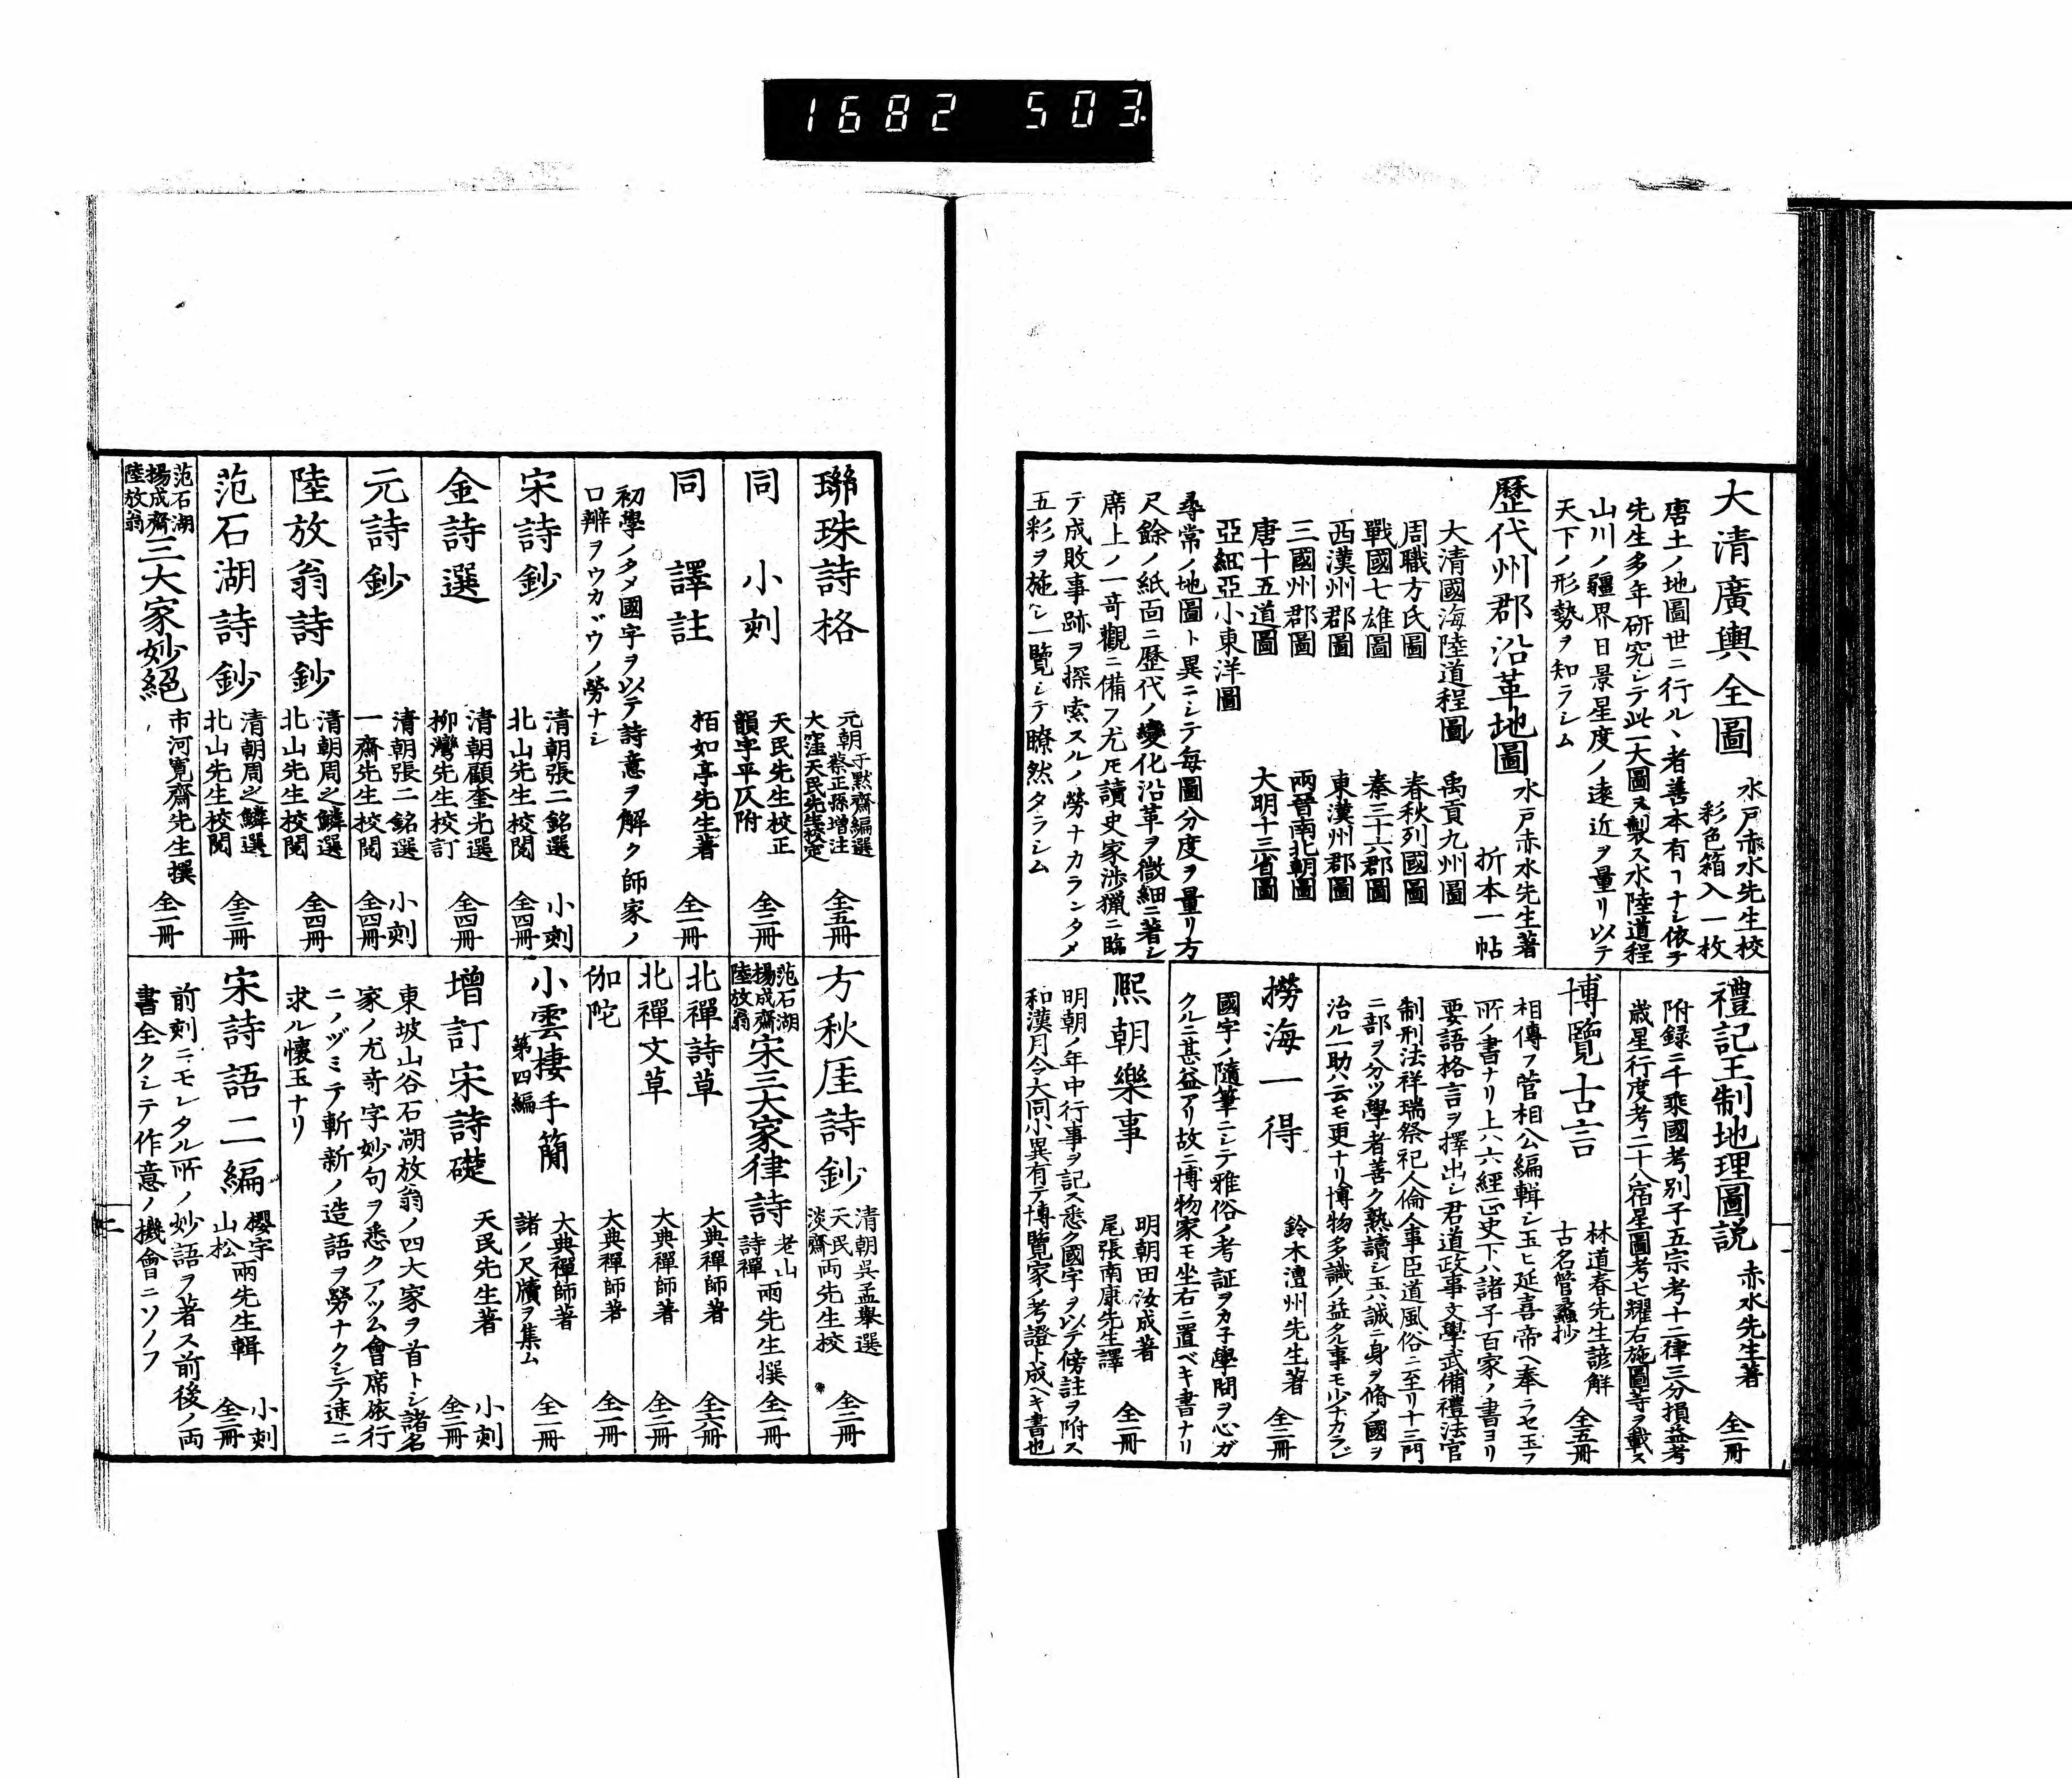 1682 503
大清廣輿全圖
水戸赤水先生校
彩色箱入一枚
唐土ノ地圖世ニ行ル丶者善本有ヿナシ依テ
先生多年研究シテ此一大圖ヲ製ス水陸道程
山川ノ疆界日景星度ノ遠近ヲ量リ以テ
天下ノ形勢ヲ知ラシム
歴代州郡沿革地圖
水戸赤水先生著
折本一帖
大清國海陸道程圖
禹貢九州圖
周職方氏圖
春秋列國圖
戰國七雄圖
秦三十六郡圖
西漢州郡圖
東漢州郡圖
三國州郡圖
兩晉南北朝圖
唐十五道圖
大明十三省圖
亞細亞小東洋圖
尋常ノ地圖ト異ニシテ毎圖分度ヲ量リ方
尺餘ノ紙面ニ歴代ノ變化沿革ヲ微細ニ著シ
席上ノ一竒觀ニ備フ尤𪜈讀史家渉獵ニ臨
テ成敗事跡ヲ探索スルノ勞ナカランタメ
五彩ヲ施シ一覽シテ瞭然タラシム
禮記王制地理圖説
赤水先生著
全一冊
附録ニ千乘國考別子五宗考十二律三分損益考
歳星行度考二十八宿星圖考七耀右施圖等ヲ載ス
博覽古言
林道春先生諺解
古名管蠡抄
全五冊
相傳フ菅相公編輯シ玉ヒ延喜帝ヘ奉ラセ玉フ
所ノ書ナリ上ハ六經正史下ハ諸子百家ノ書ヨリ
要語格言ヲ擇出シ君道政事文學武備禮法官
制刑法祥瑞祭祀人倫人事臣道風俗ニ至リ十三門
ニ部ヲ分ツ學者善ク熟讀シ玉ハ誠ニ身ヲ脩メ國ヲ
治ル一助ハ云モ更ナリ博物多識ノ益タル事モ少ナカラジ
撈海一得
鈴木澶州先生著
全二冊
國字ノ隨筆ニシテ雅俗ノ考証ヲカ子學問ヲ心ガ
クルニ甚益アリ故ニ博物家モ坐右ニ置ベキ書ナリ
熙朝樂事
明朝田汝成著
尾張南康先生譯
全一冊
明朝ノ年中行事ヲ記ス悉ク國字ヲ以テ傍註ヲ附ス
和漢月令大同小異有テ博覽家ノ考證ト成ヘキ書也
聯珠詩格
元朝于默齋編選
蔡正孫增注
大窪天民先生校定
全五冊
同 小刻
天民先生校正
韻字平仄附
全二冊
同 譯註
栢如亭先生著
全一冊
初學ノタメ國字ヲ以テ詩意ヲ解ク師家ノ
口辨ヲウカヾウノ勞ナシ
宋詩鈔
清朝張二銘選
北山先生校閲
小刻
全四冊
金詩選
清朝顧奎光選
柳灣先生校訂
全四冊
元詩鈔
清朝張二銘選
一齋先生校閲
小刻
全四冊
陸放翁詩鈔
清朝周之鱗選
北山先生校閲
全四冊
范石湖詩鈔
清朝周之鱗選
北山先生校閲
全三冊
范石湖
楊成齋
陸放翁
三大家妙絕
市河寛齋先生撰
全一冊
方秋厓詩鈔
清朝吳孟擧選
天民
淡齋
兩先生校
全二冊
范石湖
楊成齋
陸放翁
宋三大家律詩
老山
詩禪
兩先生撰
全一冊
北禪詩草
大典禪師著
全六冊
北禪文草
大典禪師著
全二冊
伽陀
大典禪師著
全一冊
小雲棲手簡
第四編
大典禪師著
諸ノ尺牘ヲ集ム
全二冊
增訂宋詩礎
天民先生著
小刻
全二冊
東坡山谷石湖放翁ノ四大家ヲ首トシ諸名
家ノ尤竒字妙句ヲ悉クアツム會席旅行
ニノゾミテ斬新ノ造語ヲ勞ナクシテ速ニ
求ル懷玉ナリ
宋詩語二編
櫻宇
山松
兩先生輯
小刻
全三冊
前刻ニモレタル所ノ妙語ヲ著ス前後ノ両
書全クシテ作意ノ機會ニソノフ
二